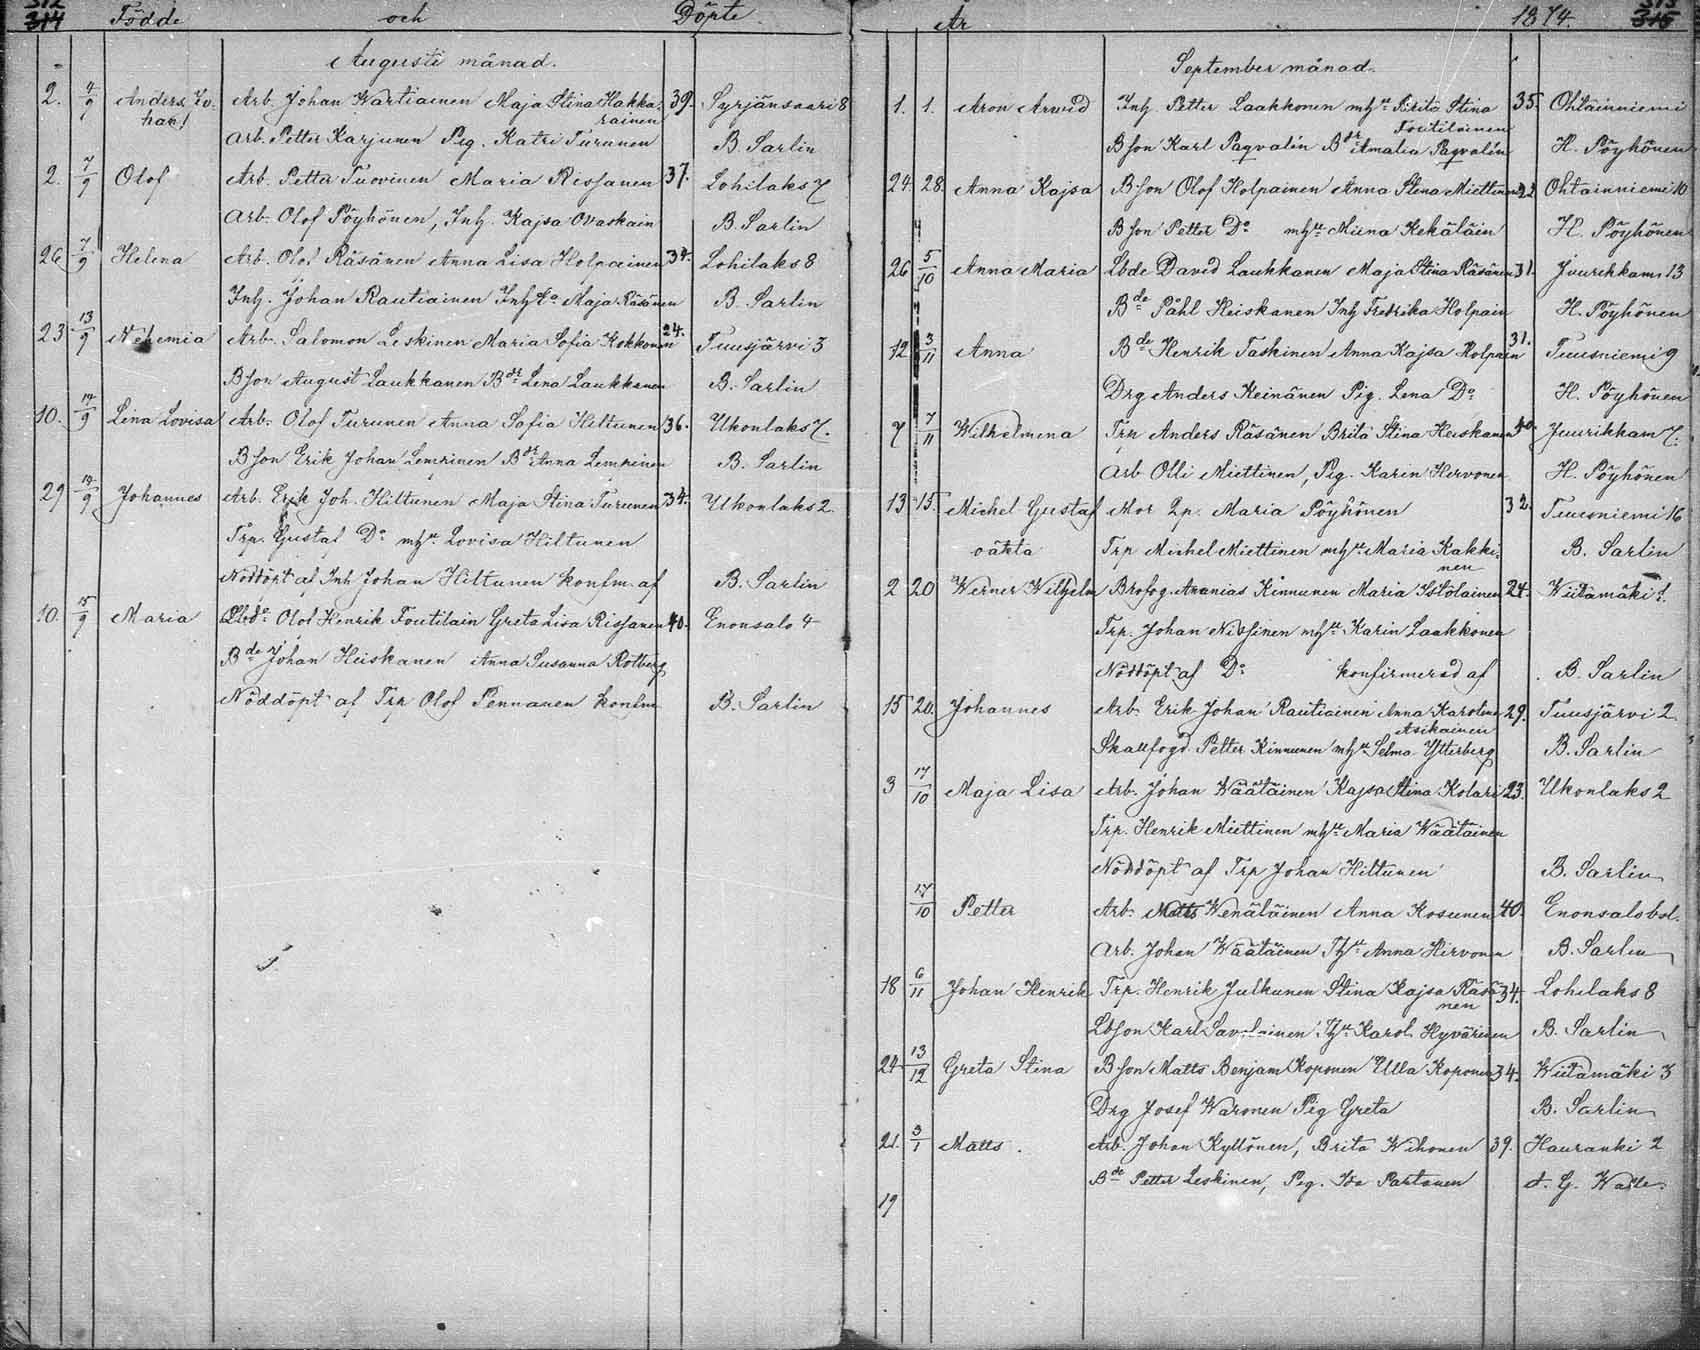 312
314 Födde och Döpte
Augusti månad.
2. 4/9 Anders Jo- Arb. Johan Wartiainen Maja Stina Hakka- 39. Syrjänsaari 8
han! rainen
Arb. Petter Karjunen Pig. Katri Turunen B. Sarlin
2. 7/9 Olof Arb. Petter Tuovinen Maria Rissanen 37. Lohilaks 7
Arb. Olof Pöyhönen, Inh. Kajsa Ovaskain B. Sarlin
26 7/9 Helena Arb. Olof Räsänen Anna Lisa Holpainen 34. Lohilaks 8
Inh. Johan Rautiainen Maja Räsänen B. Sarlin
23 13/9 Nehemia Arb. Salomon Leskinen Maria Sofia Kokkonen 24. Tuusjärvi 3
Bson August Laukkanen Bdr Lena Laukkanen B. Sarlin
10. 14/9 Lina Lovisa Arb. Olof Turunen Anna Sofia Hiltunen 36. Ukonlaks 7.
Bson Erik Johan Lempinen Bdr Anna Lempinen B. Sarlin
29 14/9 Johannes Arb. Erik Joh. Hiltunen Maja Stina Turunen 34. Ukonlaks 2
Trp. Gustaf Do mhu Lovisa Hiltunen
Nöddöpt af Inh Johan Hiltunen konfm. af B. Sarlin
10. 15/9 Maria Olof Henrik Foutilain Greta Lisa Rissanen 40. Enonsalo 4
Bde Johan Heiskanen Anna Susanna Rotberg
Nöddöpt af Trp Olof Pennanen konfm B. Sarlin
År 1874. 315
September månad.
1. 1. Aron Arwid Inh. Petter Laakkonen mhu Brita Stina 35. Ohtainniemi
Foutilainen
Bson Karl Paqvalin Bdr Amalia Paqvalin H. Pöyhönen
24. 28. Anna Kajsa Bson Olof Holpainen Anna Stina Miettinen 22 Ohtainniemi 10
Bson Petter Do mhu Miina Kekäläin H. Pöyhönen
26 5/10 Anna Maria Lbde David Laukkanen Maja Stina Räsänen 31. Juurikkam. 13
Bde Påhl Heiskanen Inh Fredrika Holpain H. Pöyhönen
12 3/11 Anna Bde Henrik Taskinen Anna Kajsa Holpain 31. Tuusniemi 9
Drg Anders Keinänen Pig. Lena Do H. Pöyhönen
7 7/11 Wilhelmena Trp Anders Räsänen Brita Stina Heiskanen 40. Juurikkam 7.
Arb Olli Miettinen, Pig. Karin Hirvonen H. Pöyhönen
13 15. Michel Gustaf Mor Lp. Maria Pöyhönen 32. Tuusniemi 16
oäkta Trp Michel Miettinen mhu Maria Kakki- B. Sarlin
nen
2 20 Werner Wilhelm Brofog. Ananias Kinnunen Maria Istolainen 24. Wiitamäki 1.
Trp. Johan Nissinen mhu Karin Laakkonen
Nöddöpt af Do konfirmerad af B. Sarlin
15 20. Johannes Arb. Erik Johan Rautiainen Anna Karolina 29. Tuusjärvi 2
Asikainen
Skallfogd Petter Kinnunen mhu Selma Ytterberg B. Sarlin
3 17/10 Maja Lisa Arb. Johan Wäätäinen Kajsa Stina Kolari 23. Ukonlaks 2
Trp. Henrik Miettinen mhu Maria Wäätäinen
Nöddöpt af Trp Johan Hiltunen B. Sarlin
17/10 Petter Arb. Matts Wenäläinen Anna Kosunen 40. Enonsalo bol.
Arb. Johan Wäätäinen Anna Hirvonen B. Sarlin
18 6/11 Johan Henrik Trp. Henrik Julkunen Stina Kajsa Räsä- 34. Lohilaks 8
nen
Lbson Karl Savolainen Karol. Hyvärinen B. Sarlin
24 13/12 Greta Stina Bson Matts Benjam Koponen Ulla Koponen 34. Wiitamäki 3
Drg Josef Waronen Pig Greta B. Sarlin
21. 3/1 Matts. Arb. Johan Kyllönen, Brita Wihonen 39. Hauranki 2
Bde Petter Leskinen, Pig. Ida Partanen A. G. Walle.
19